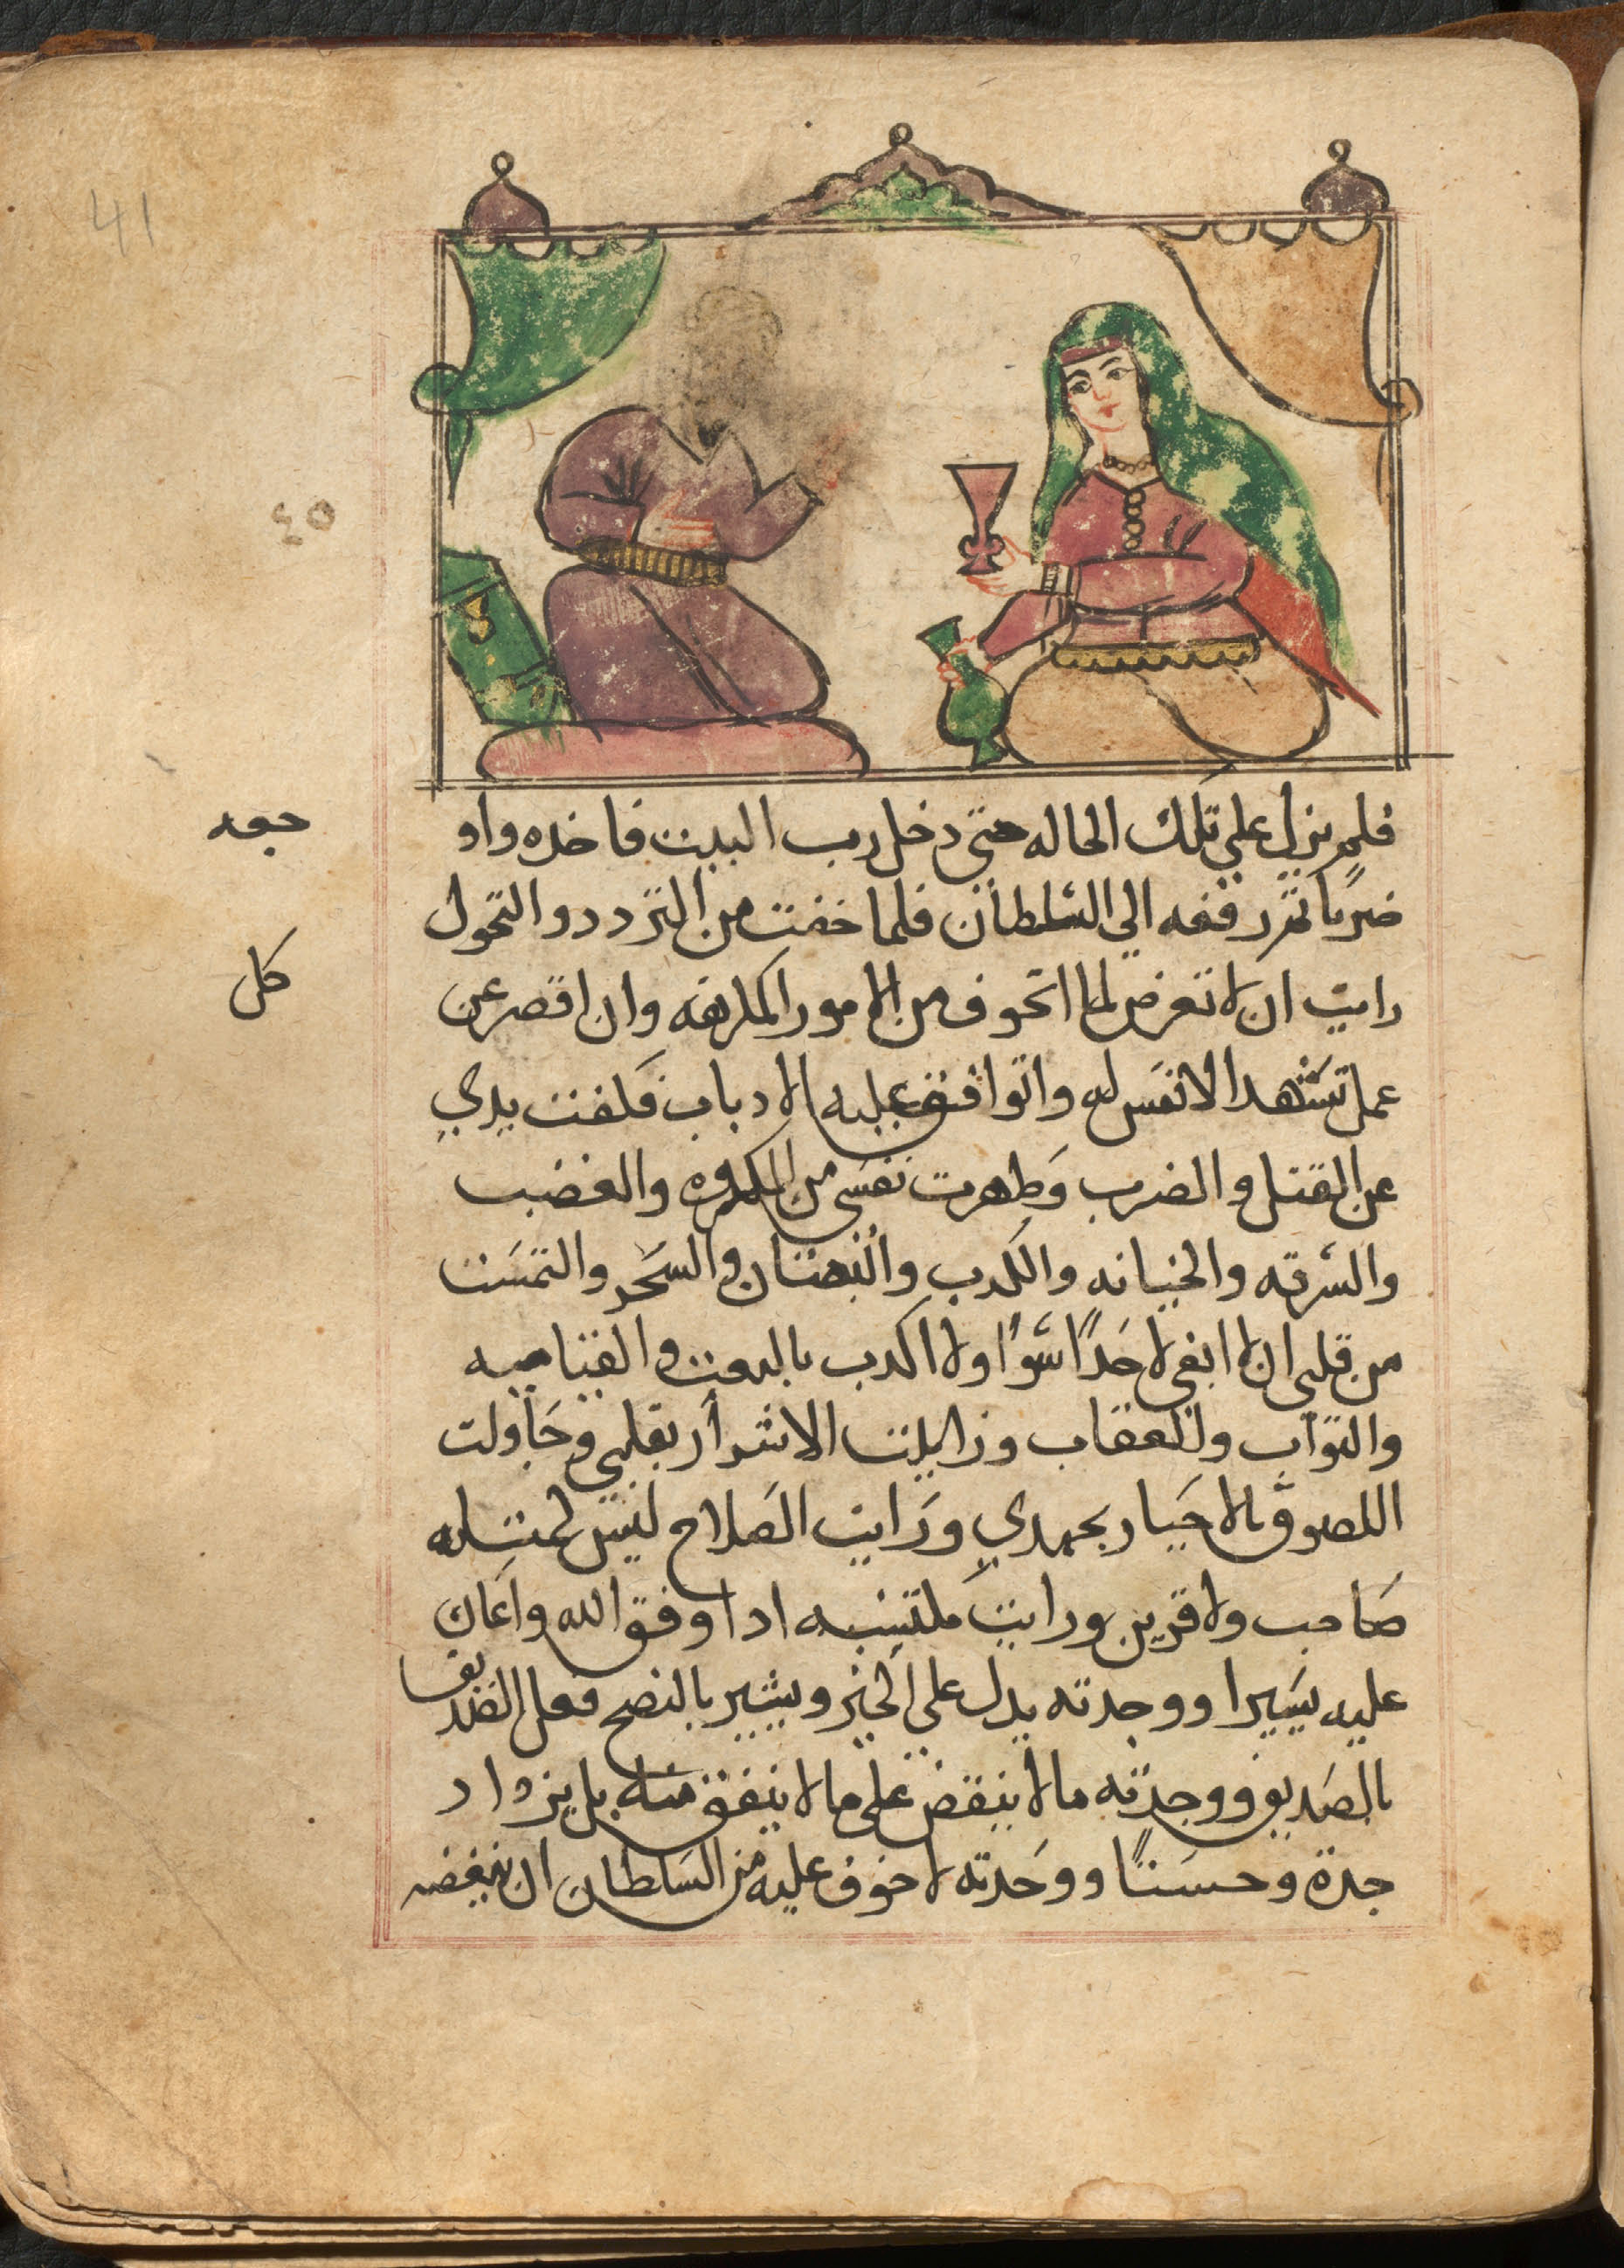 فلم يزل علي تلك الحاله حتي دخل رب البيت فاخده واو
جعه
ضربًا تم رفعه الي السلطان فلما خفت من التردد والتحول
رايت ان لا تعرض لما اتخوف من الامور المكروهه وان اقصر عن
كل
عمل تشهد الانفس له واتوافق عليه الادباب فكففت يدي
عن القتل والضرب وطهرت نفسي من المكروه والغضب
والسرقه والخيانه والكدب والبهتان والسحر والتمست
من قلبي ان لا ابغي لاحدًا سوًا ولا اكدب بالبعت والقيامه
والتواب والعقاب وزايلت الاشرار بقلبي وحاولت
اللصوق بالاخيار بجهدي ورايت الصلاح ليس كمتله
صاحب ولا قرين ورايت مكتسبه ادا وفق الله واعان
عليه يسيرا ووجدته يدل علي الخير ويشير بالنصح فعل الصديق
بالصديق ووجدته ما لا ينقض علي ما لا ينفق منه بل يزداد
جدة وحسنًا ووجدته لا خوف عليه من السلطان ان يبغضه
41